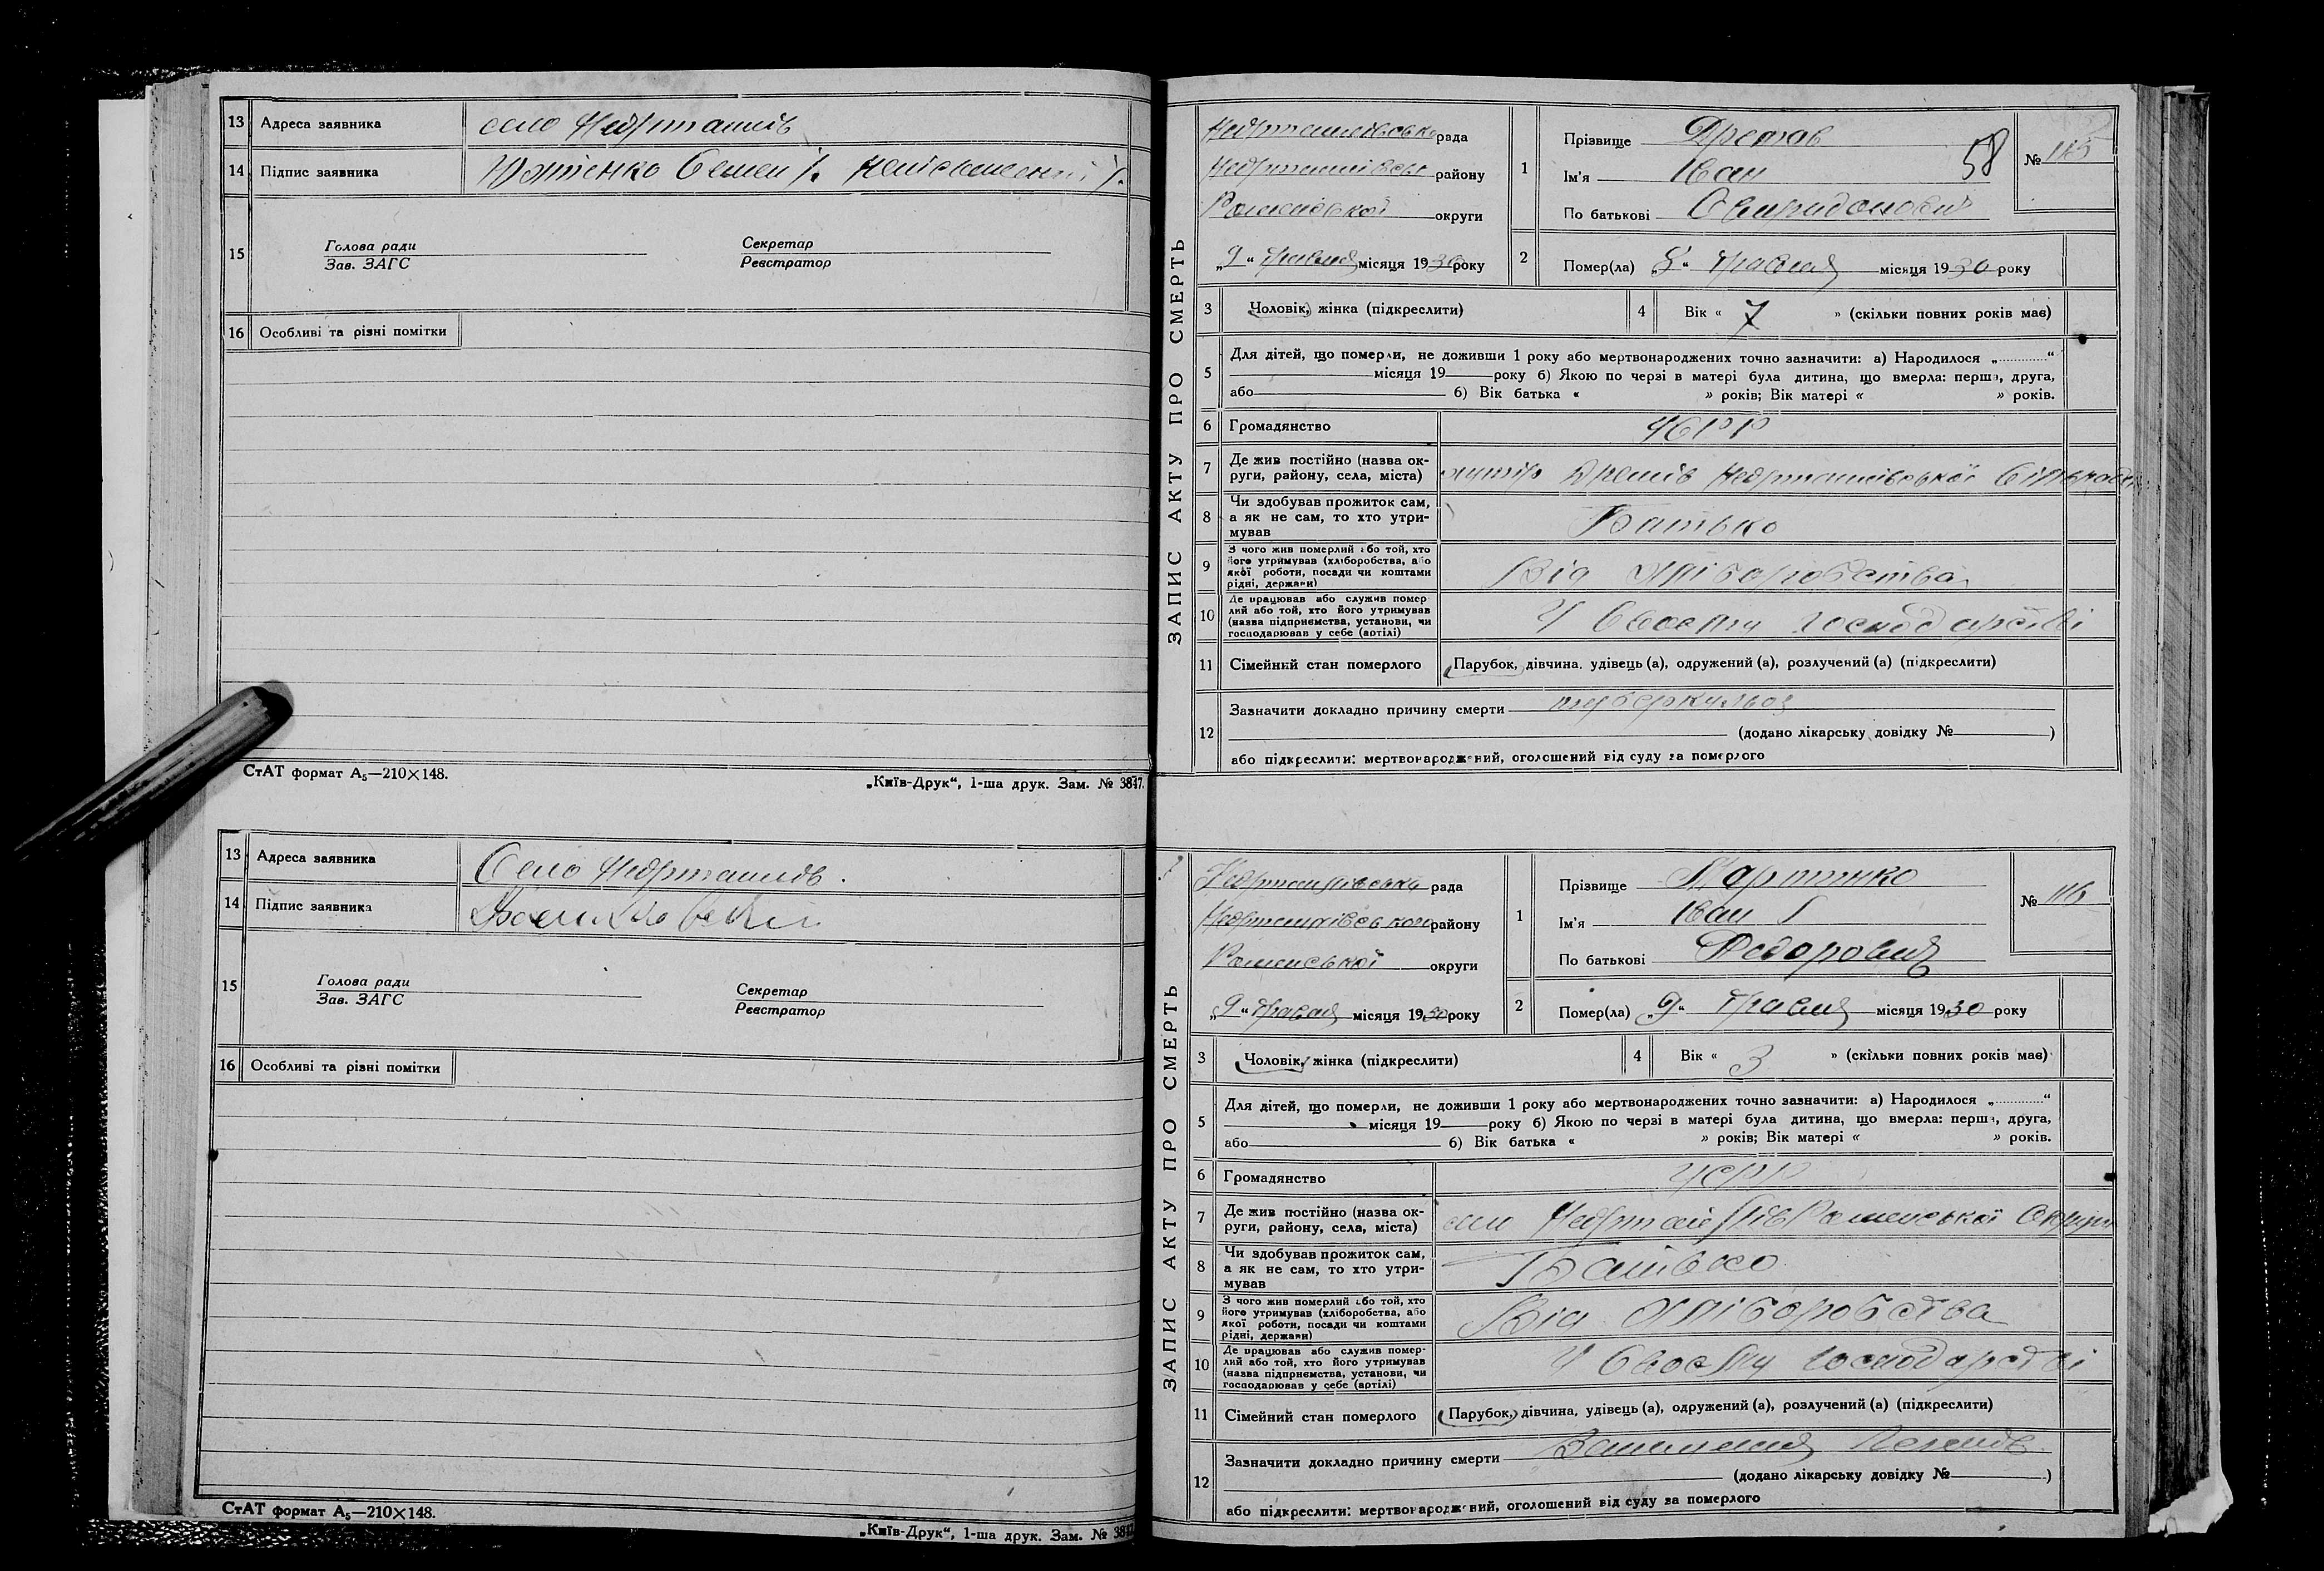 13 Адреса заявника село Недригайлів
14 Підпис заявника Семен
15 Голова ради Секретар
Зав. ЗАГС Реєстратор
16 Особливі та різні помітки
СтАТ формат А₅—210×148. „Київ-Друк“, 1-ша друк. Зам. № 3817.
13 Адреса заявника Село Недригайлів.
14 Підпис заявника
15 Голова ради Секретар
Зав. ЗАГС Реєстратор
16 Особливі та різні помітки
СтАТ формат А₅—210×148.
„Київ-Друк“, 1-ша друк. Зам. №
ЗАПИС АКТУ ПРО СМЕРТЬ
Недригайлівська рада
району
Роменської округи
„9“ травня місяця 1930 року
1 Прізвище
Ім’я Іван 58
По батькові Свиридонович
№ 115
2 Помер(ла) „8“ травня місяця 1930 року
3 Чоловік, жінка (підкреслити) 4 Вік « 7 » (скільки повних років має)
5 Для дітей, що померли, не доживши 1 року або мертвонароджених точно зазначити: а) Народилося „............“
місяця 19 року б) Якою по черзі в матері була дитина, що вмерла: перша, друга,
або б) Вік батька « » років; Вік матері « » років.
6 Громадянство УСРР
7 Де жив постійно (назва ок-
руги, району, села, міста) хутір Недригайлівської Сільради
8 Чи здобував прожиток сам,
а як не сам, то хто утри-
мував Батько
9 З чого жив померлий або той, хто
його утримував (хліборобства, або
якої роботи, посади чи коштами
рідні, держави) Від хліборобства
10 Де працював або служив помер-
лий або той, хто його утримував
(назва підприємства, установи, чи
господарював у себе (артілі) У своєму господарстві
11 Сімейний стан померлого Парубок, дівчина, удівець (а), одружений (а), розлучений (а) (підкреслити)
12 Зазначити докладно причину смерти туберкульоз
(додано лікарську довідку № )
або підкреслити: мертвонароджений, оголошений від суду за померлого
ЗАПИС АКТУ ПРО СМЕРТЬ
Недригайлівська рада
Недригайлівського району
Роменської округи
„9“ травня місяця 1930 року
1 Прізвище
Ім’я Іван
По батькові Федорович
№ 116
2 Помер(ла) „9“ травня місяця 1930 року
3 Чоловік, жінка (підкреслити) 4 Вік « 3 » (скільки повних років має)
5 Для дітей, що померли, не доживши 1 року або мертвонароджених точно зазначити: а) Народилося „............“
місяця 19 року б) Якою по черзі в матері була дитина, що вмерла: перша, друга,
або б) Вік батька « » років; Вік матері « » років.
6 Громадянство УСРР
7 Де жив постійно (назва ок-
руги, району, села, міста) село Недригайлів Роменської Округи
8 Чи здобував прожиток сам,
а як не сам, то хто утри-
мував Батько
9 З чого жив померлий або той, хто
його утримував (хліборобства, або
якої роботи, посади чи коштами
рідні, держави) Від хліборобства
10 Де працював або служив помер-
лий або той, хто його утримував
(назва підприємства, установи, чи
господарював у себе (артілі) У своєму господарстві
11 Сімейний стан померлого Парубок, дівчина, удівець (а), одружений (а), розлучений (а) (підкреслити)
12 Зазначити докладно причину смерти Запалення Легенів
(додано лікарську довідку № )
або підкреслити: мертвонароджений, оголошений від суду за померлого